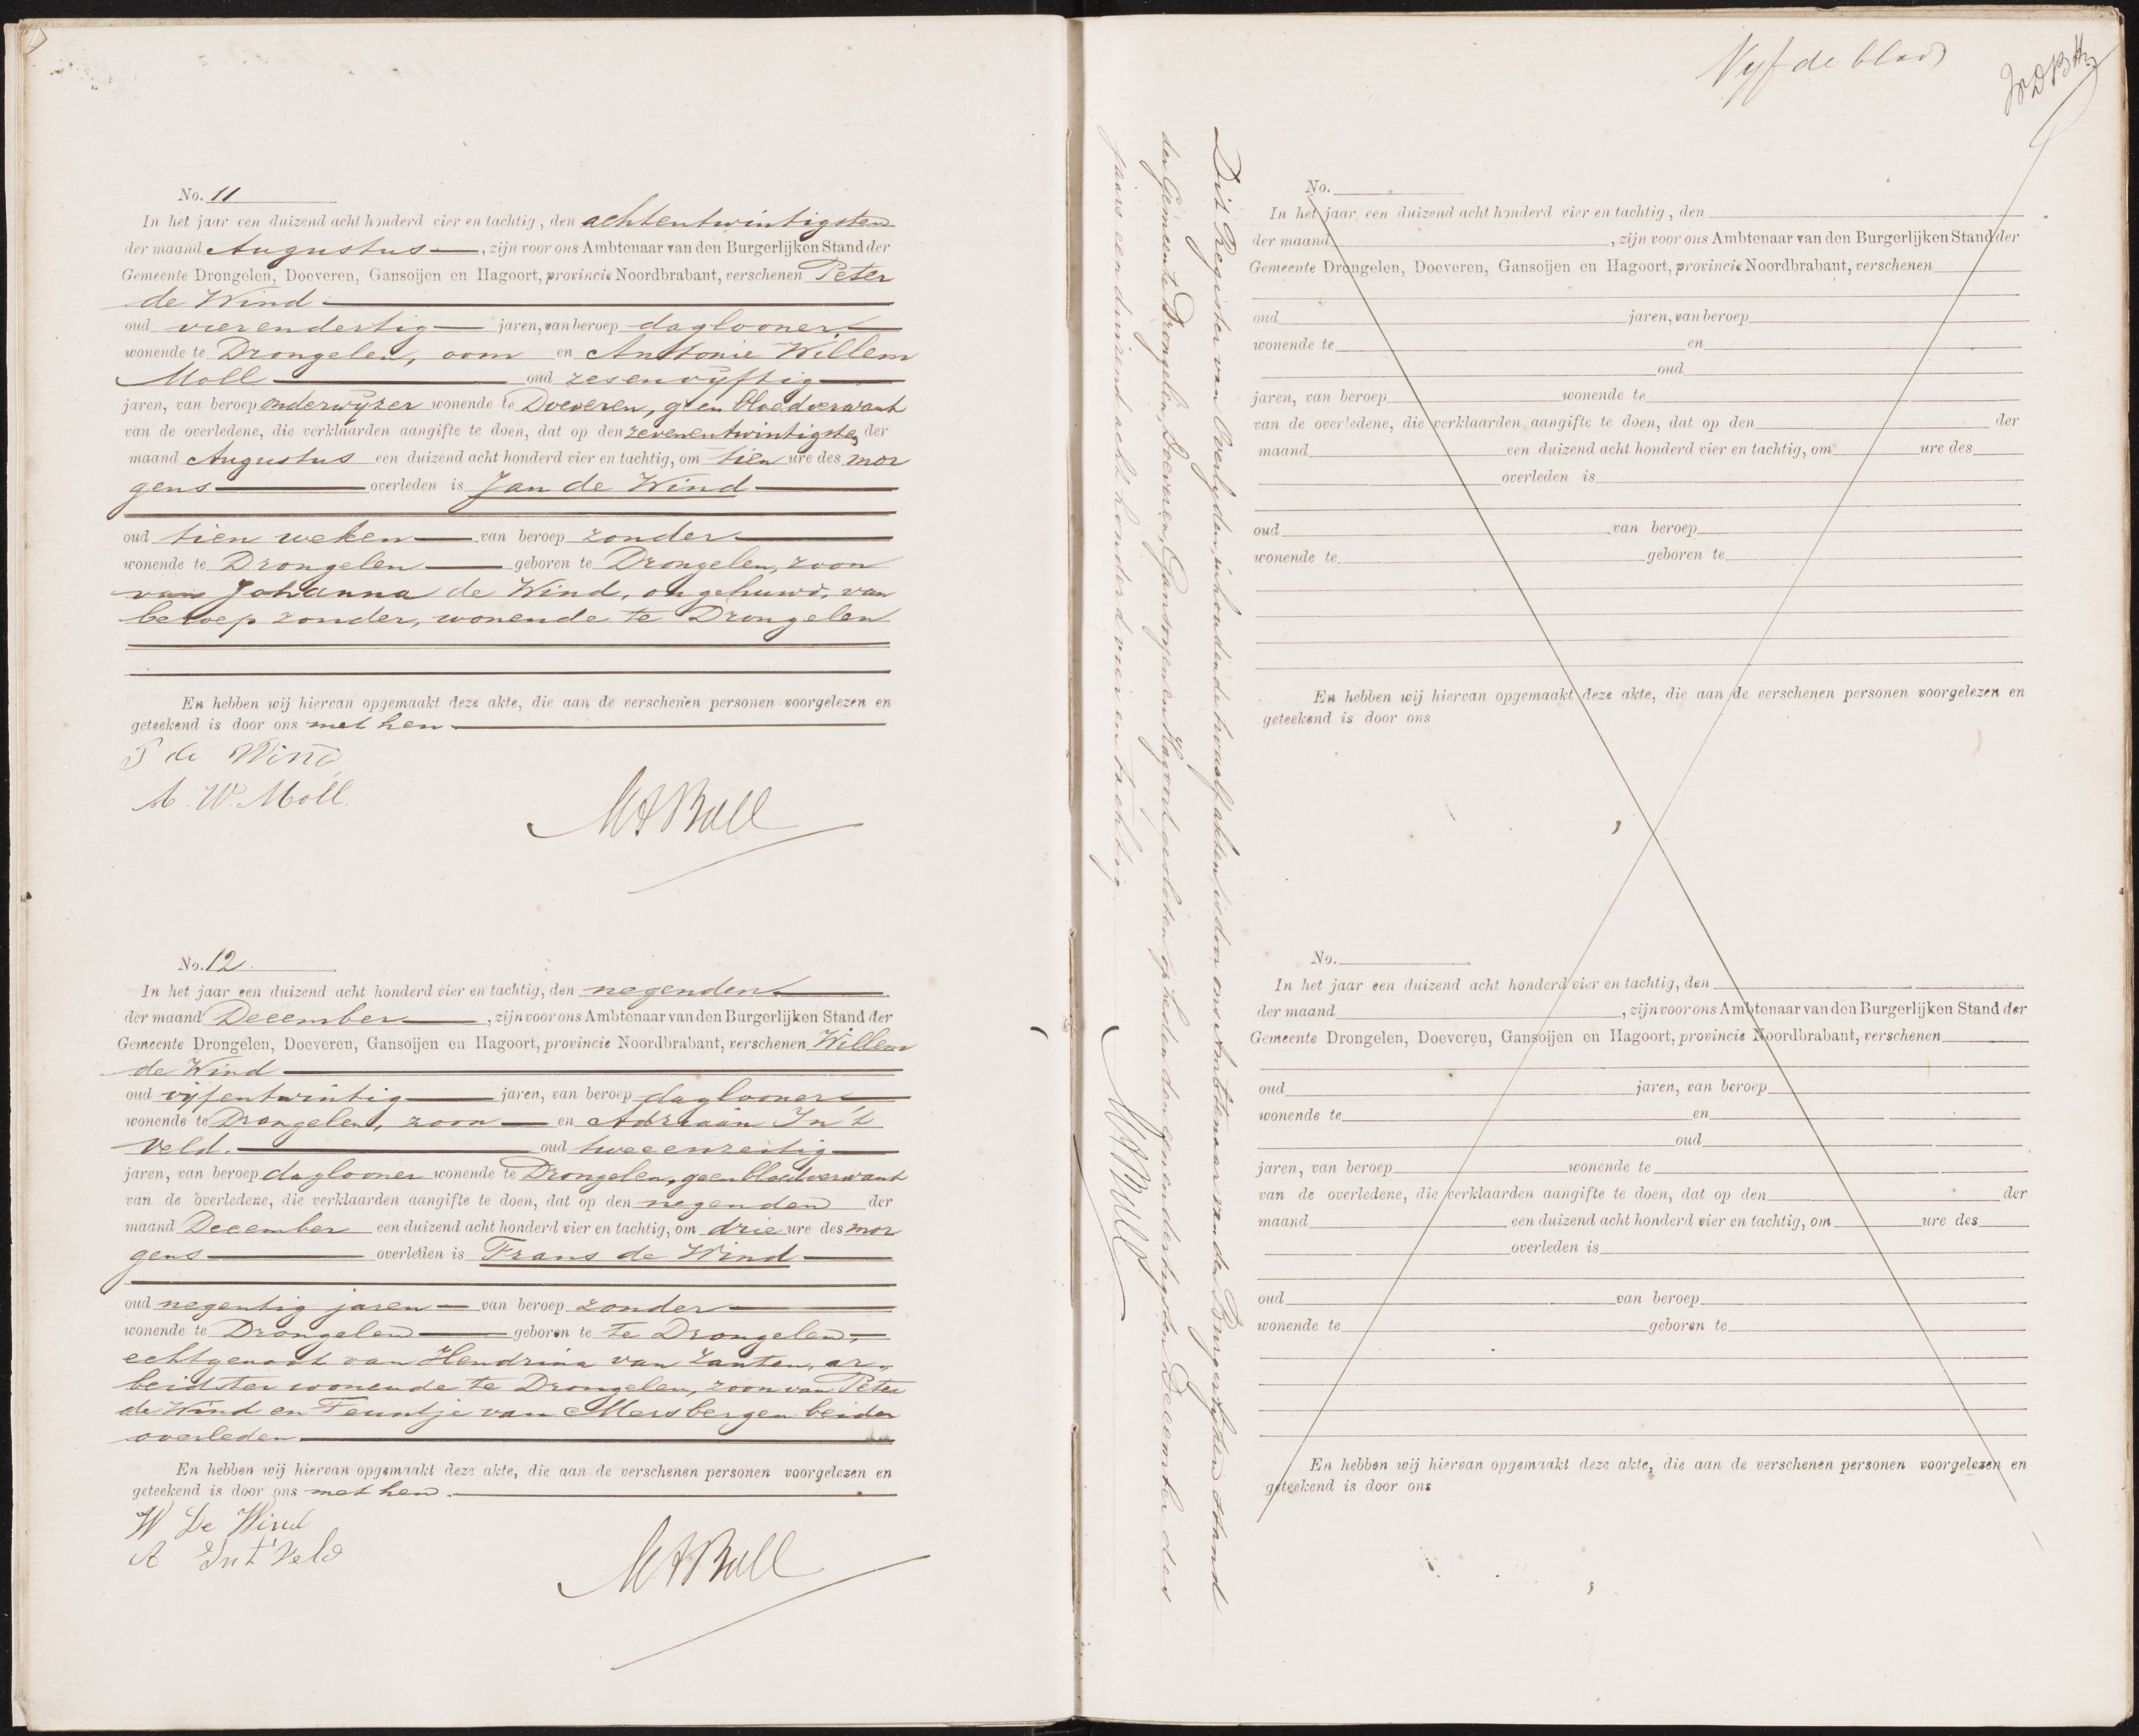 No. 11
In het jaar een duizend acht honderd vier en tachtig, den achtentwintigsten
der maand Augustus, zijn voor ons Ambtenaar van den Burgerlijken Stand der
Gemeente Drongelen, Doeveren, Gansoijen en Hagoort, provincie Noordbrabant, verschenen Peter
de Wind
oud vierendertig jaren, van beroep daglooner,
wonende te Drongelen, oom en Antonie Willem
Moll oud zesenvijftig
jaren, van beroep onderwijzer wonende te Doeveren, geen bloedverwant
van de overledene, die verklaarden aangifte te doen, dat op den zevenentwintigsten der
maand Augustus een duizend acht honderd vier en tachtig, om tien ure des mor
gens overleden is Jan de Wind
oud tien weken van beroep zonder
wonende te Drongelen geboren te Drongelen, zoon
van Johanna de Wind, ongehuwd, van
beroep zonder, wonende te Drongelen
En hebben wij hiervan opgemaakt deze akte, die aan de verschenen personen voorgelezen en
geteekend is door ons met hen.
P de Wind
A. W. Moll.
MABall
No. 12.
In het jaar een duizend acht honderd vier en tachtig, den negenden
der maand December, zijn voor ons Ambtenaar van den Burgerlijken Stand der
Gemeente Drongelen, Doeveren, Gansoijen en Hagoort, provincie Noordbrabant, verschenen Willem
de Wind
oud vijfentwintig jaren, van beroep daglooner
wonende te Drongelen, zoon en Adriaan In 't
Veld. oud tweeenzestig
jaren, van beroep daglooner wonende te Drongelen, geen bloedverwant
van de overledene, die verklaarden aangifte te doen, dat op den negenden der
maand December een duizend acht honderd vier en tachtig, om drie ure des mor
gens overleden is Frans de Wind
oud negentig jaren van beroep zonder
wonende te Drongelen geboren te te Drongelen,
echtgenoot van Hendrina van Zanten, ar-
beidster wonende te Drongelen, zoon van Peter
de Wind en Teuntje van Mersbergen beiden
overleden
En hebben wij hiervan opgemaakt deze akte, die aan de verschenen personen voorgelezen en
geteekend is door ons met hen.
W De Wind
A In t' Veld
MABall
Vyfde blad
Dit Register van Overlyden, inhoudende twaalf akten, is door ons Ambtenaar van den Burgerlyken Stand
der Gemeente Drongelen, Doeveren, Gansoyen en Hagoort gesloten op heden den eenendertigsten December des
jaars een duizend acht honderd vier en tachtig
MABall
No.
In het jaar een duizend acht honderd vier en tachtig, den
der maand , zijn voor ons Ambtenaar van den Burgerlijken Stand der
Gemeente Drongelen, Doeveren, Gansoijen en Hagoort, provincie Noordbrabant, verschenen
oud jaren, van beroep
wonende te en
oud
jaren, van beroep wonende te
van de overledene, die verklaarden aangifte te doen, dat op den der
maand een duizend acht honderd vier en tachtig, om ure des
overleden is
oud van beroep
wonende te geboren te
En hebben wij hiervan opgemaakt deze akte, die aan de verschenen personen voorgelezen en
geteekend is door ons
No.
In het jaar een duizend acht honderd vier en tachtig, den
der maand , zijn voor ons Ambtenaar van den Burgerlijken Stand der
Gemeente Drongelen, Doeveren, Gansoijen en Hagoort, provincie Noordbrabant, verschenen
oud jaren, van beroep
wonende te en
oud
jaren, van beroep wonende te
van de overledene, die verklaarden aangifte te doen, dat op den der
maand een duizend acht honderd vier en tachtig, om ure des
overleden is
oud van beroep
wonende te geboren te
En hebben wij hiervan opgemaakt deze akte, die aan de verschenen personen voorgelezen en
geteekend is door ons